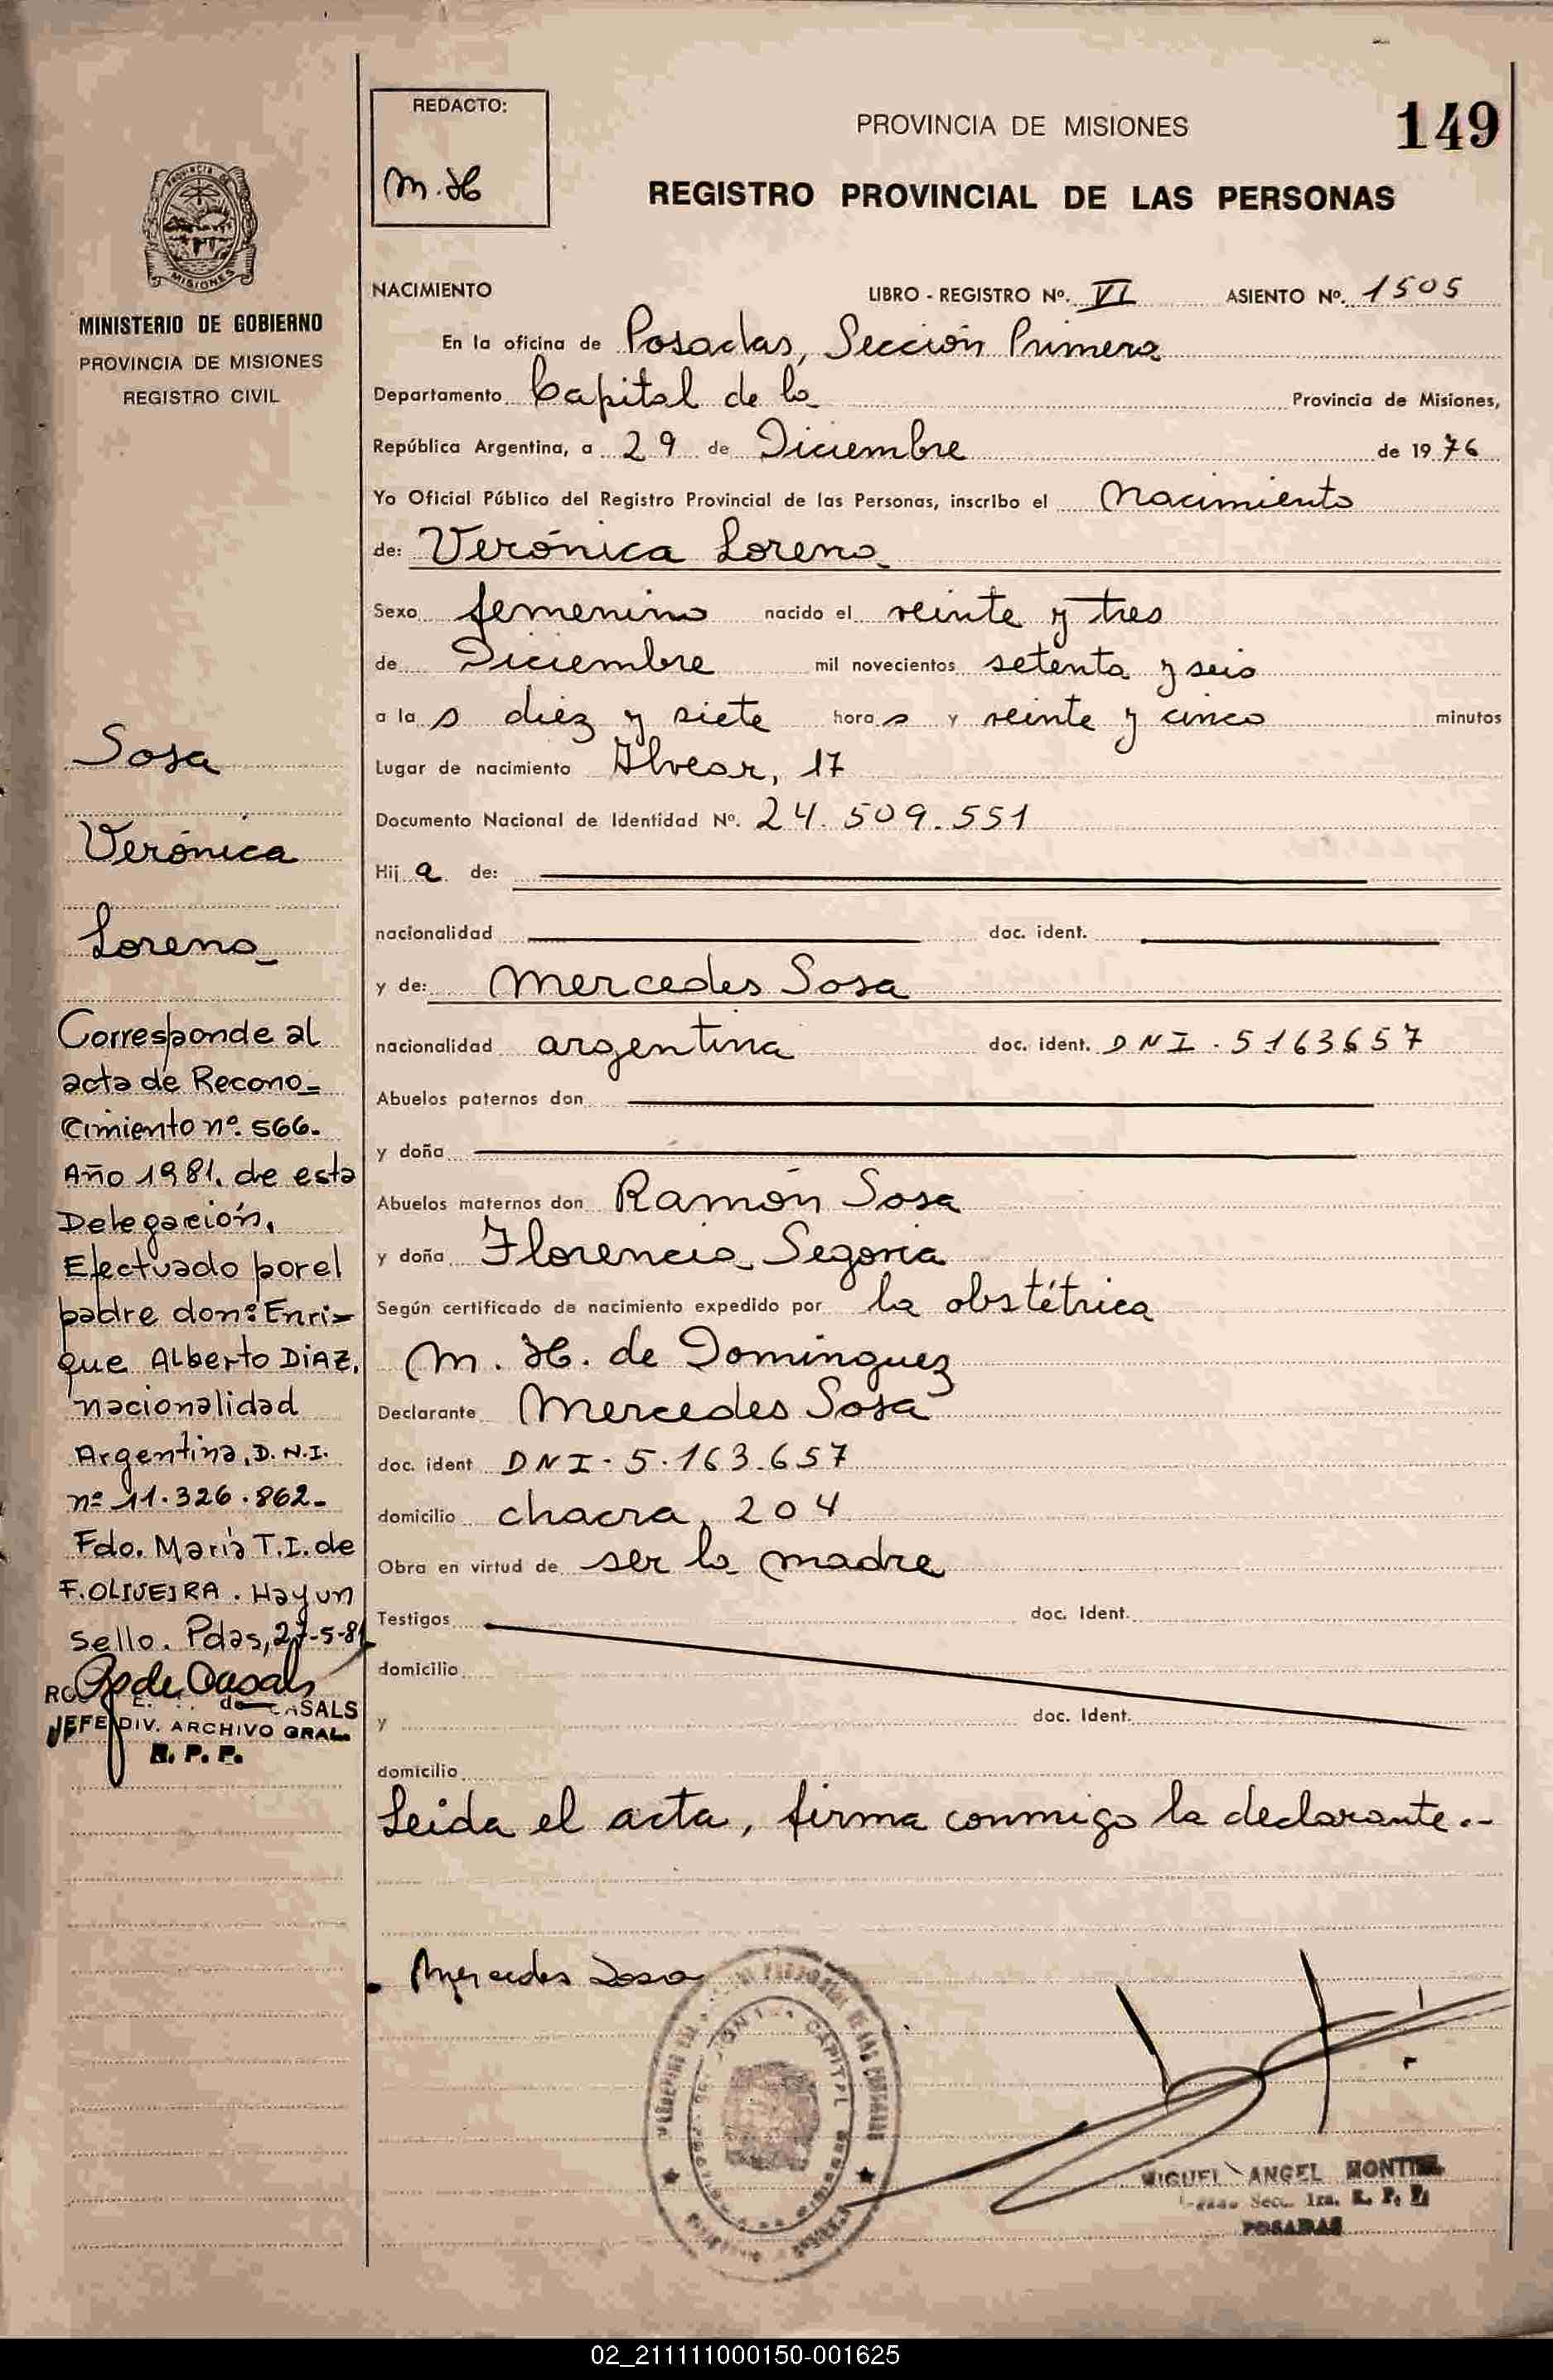 REDACTO:
M.H
PROVINCIA DE MISIONES
149
REGISTRO PROVINCIAL DE LAS PERSONAS
MISIONES
MINISTERIO DE GOBIERNO
PROVINCIA DE MISIONES
REGISTRO CIVIL
Sosa
Verónica
Lorena
Corresponde al
acta de Recono-
cimiento nº. 566.
Año 1981. de esta
Delegación,
Efectuado por el
padre don: Enri-
que Alberto DiAZ,
nacionalidad
Argentina, D.N.I.
nº 11.326.862-
Fdo. María T.I. de
F. OLIVEIRA. Hay un
sello. Pdas, 27-5-81
de CASALS
JEFE DIV. ARCHIVO GRAL.
R. P. P.
NACIMIENTO LIBRO - REGISTRO Nº. VI ASIENTO Nº. 1505
En la oficina de Posadas, Sección Primera
Departamento Capital de la Provincia de Misiones,
República Argentina, a 29 de Diciembre de 1976
Yo Oficial Público del Registro Provincial de las Personas, inscribo el Nacimiento
de: Verónica Lorena
Sexo femenino nacido el veinte y tres
de Diciembre mil novecientos setenta y seis
a la s diez y siete hora s y veinte y cinco minutos
Lugar de nacimiento Alvear, 17
Documento Nacional de Identidad Nº. 24.509.551
Hij a de:
nacionalidad doc. ident.
y de: Mercedes Sosa
nacionalidad argentina doc. ident. DNI. 5163657
Abuelos paternos don
y doña
Abuelos maternos don Ramón Sosa
y doña Florencia Segovia
Según certificado de nacimiento expedido por la obstétrica
M. H. de Dominguez
Declarante Mercedes Sosa
doc. ident DNI. 5.163.657
domicilio chacra, 204
Obra en virtud de ser la madre
Testigos doc. Ident.
domicilio
y doc. Ident.
domicilio
Leida el acta, firma conmigo la declarante.-
Mercedes Sosa
CAPITAL
MIGUEL ANGEL
Secc. 1ra. R. P. P.
POSADAS
02_211111000150-001625